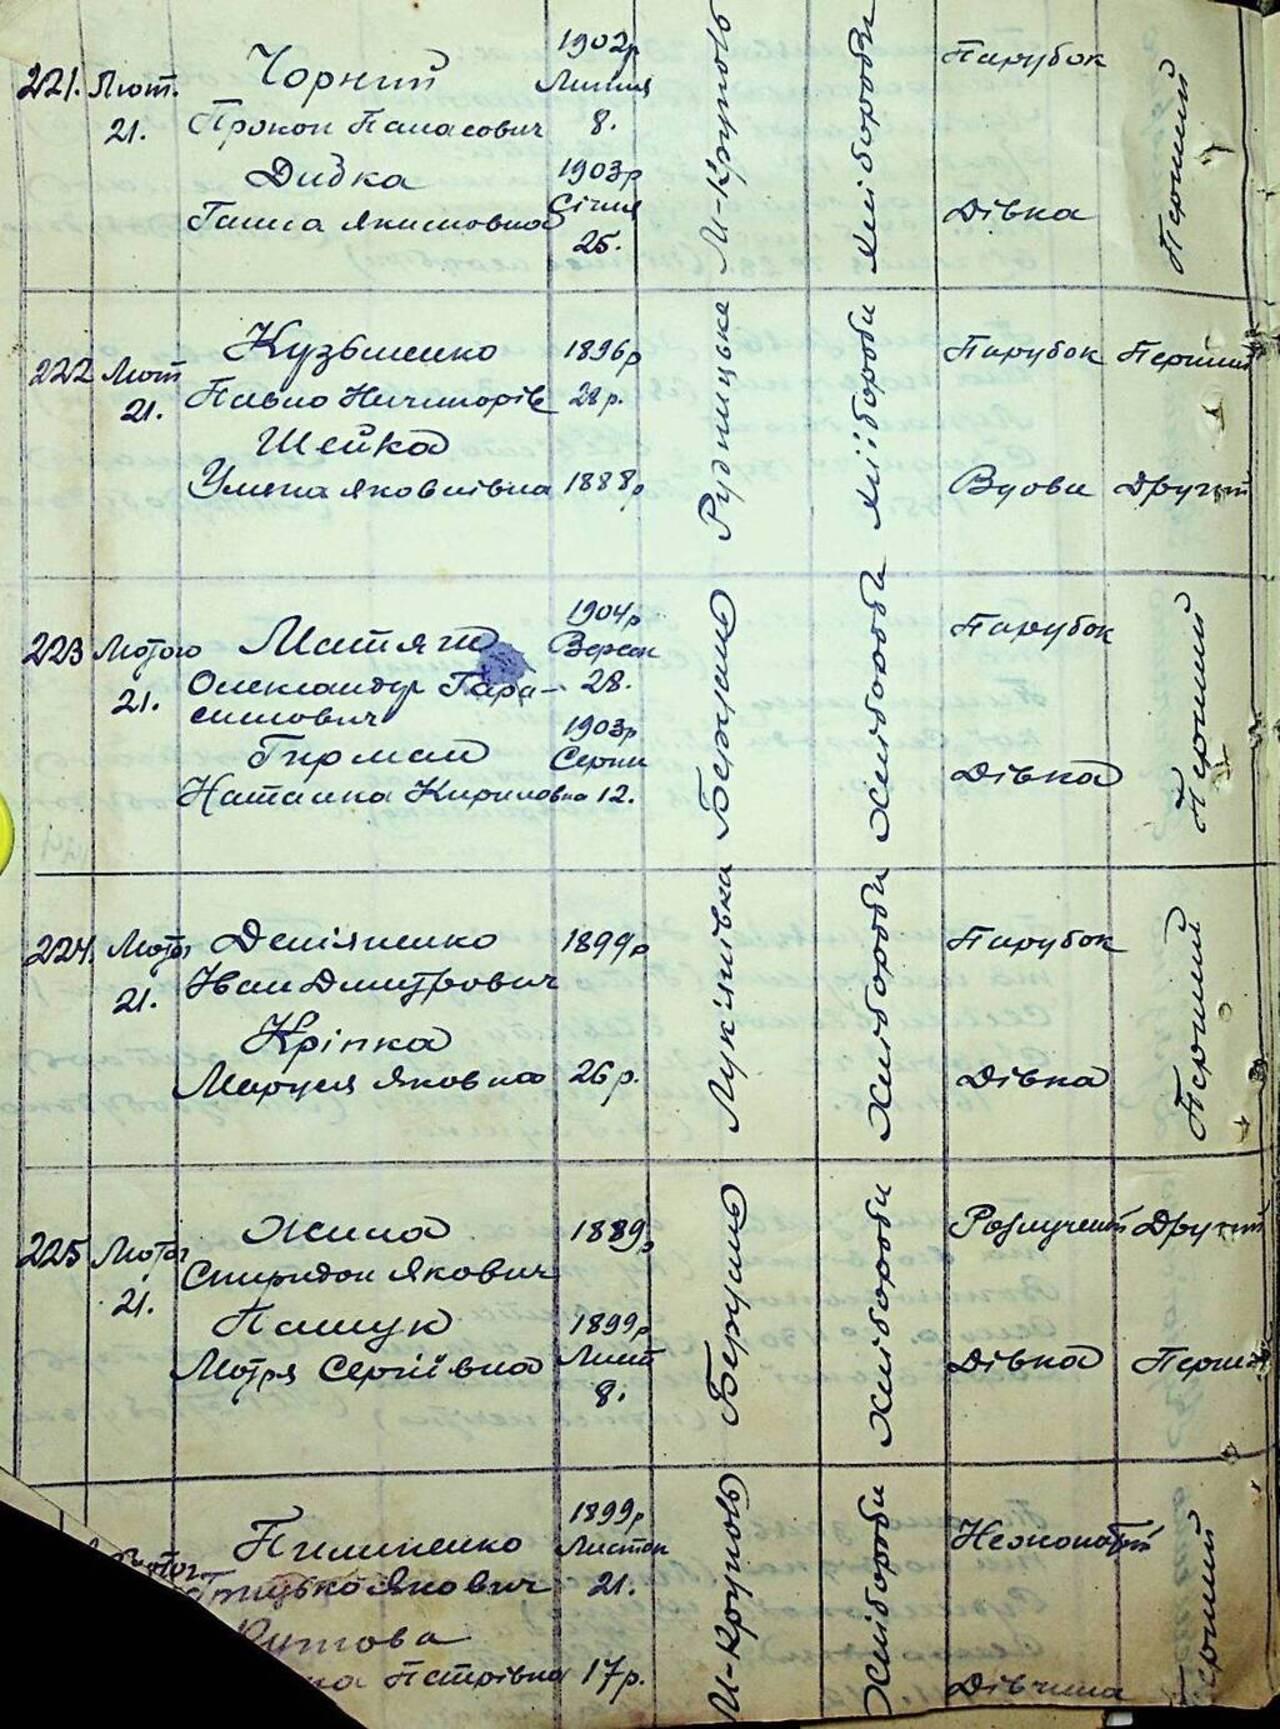 221. Лют. 21.
Чорний
Прокоп Панасович
1902р
Липня
8.
Дидка
Ганна Якимовна
1903р
Січня
25.
М-Крупол
Хлібороби
Парубок
Дівка
Перший
222 Лют 21.
Кузьменко
Павло Ничипорів
1896р
28р.
Шейка
Уляна Яковлівна
1888р
Рудницьке
Хлібороби
Парубок Перший
Вдова Другий
223 Лютого 21.
Матяш
Олександр Гара-
симович
1904р
Вересн
28.
Гирман
Наталка Кириловна
1903р
Серпн
12.
Березань
Хлібороби
Парубок
Дівка
Перший
224. Лютог 21.
Демʼяненко
Иван Дмитрович
1899р
Кріпка
Маруся Яковна
26р.
Лук'янівка
Хлібороби
Парубок
Дівка
Перший
225 Лютог 21.
Жила
Спиридон Якович
1889р
Пащук
Мотря Сергіївна
1899р
Лист
8.
Березань
Хлібороби
Розлучений Другий
Дівка Перши
Лютог
Пилипенко
Грицько Якович
1899р
Листоп
21.
Петрівна
17р.
М-Крупол
Хлібороби
Нежонатий
Дівчина
Перший